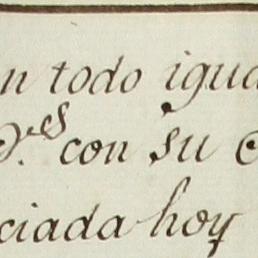 n todo igua
D.es con su
ciada hoy